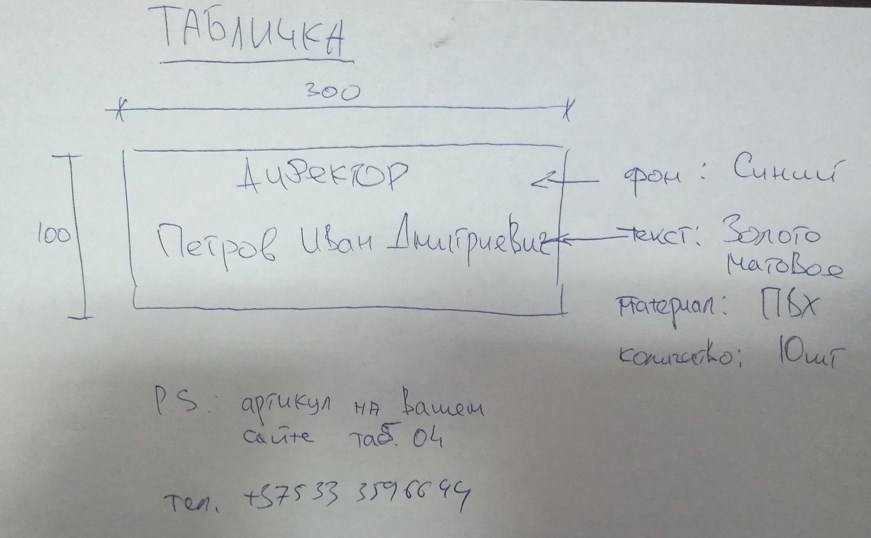 ТАБЛИЧКА
300
100
ДИРЕКТОР
Петров Иван Дмитриевич
фон: Синий
текст: Золото
матовое
материал: ПВХ
количество: 10шт
PS: артикул на вашем
сайте таб. 04
тел. +375 33 3596644